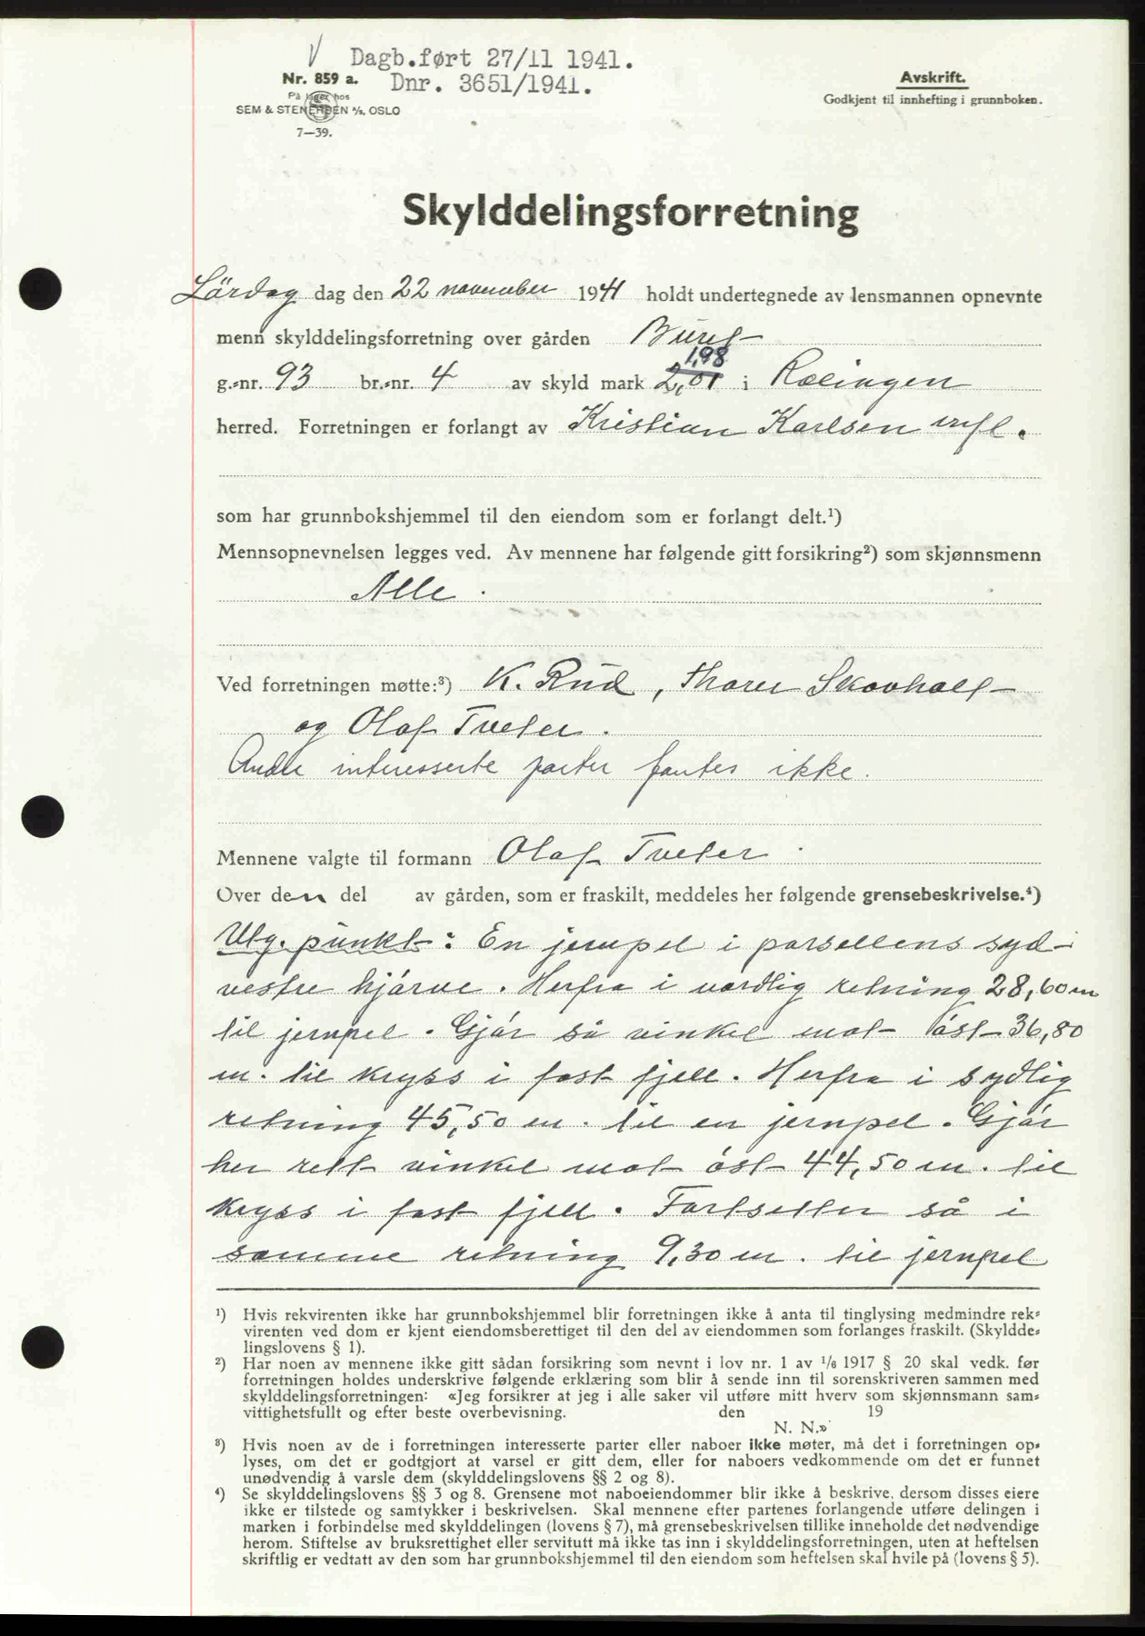 V Dagb.ført 27/11 1941.
Nr. 859 a. Dnr. 3651/1941.
Avskrift.
På lager hos
Godkjent til innhefting i grunnboken.
SEM & STENERSEN A/S, OSLO
7—39.
Skylddelingsforretning
Lördag dag den 22 november 1941 holdt undertegnede av lensmannen opnevnte
menn skylddelingsforretning over gården Burst
1,98
g.-nr. 93 br.-nr. 4 av skyld mark 2,01 i Rælingen
herred. Forretningen er forlangt av Kristian Karlsen mfl.
som har grunnbokshjemmel til den eiendom som er forlangt delt.¹)
Mennsopnevnelsen legges ved. Av mennene har følgende gitt forsikring²) som skjønnsmenn
Alle.
Ved forretningen møtte:³) K. Rud, Thorer Skovholt
og Olaf Tveter.
Andre interesserte parter fantes ikke.
Mennene valgte til formann Olaf Tveter.
Over den del av gården, som er fraskilt, meddeles her følgende grensebeskrivelse.⁴)
Utg. punkt: En jernpel i parsellens syd-
vestre hjørne. Herfra i nordlig retning 28,60 m
til jernpel. Gjör så vinkel mot öst 36,80
m. til kryss i fast fjell. Herfra i sydlig
retning 45,50 m. til en jernpel. Gjör
her rett vinkel mot öst 44,50 m. til
kryss i fast fjell. Fortsetter så i
samme retning 9,30 m. til jernpel
¹) Hvis rekvirenten ikke har grunnbokshjemmel blir forretningen ikke å anta til tinglysing medmindre rek-
virenten ved dom er kjent eiendomsberettiget til den del av eiendommen som forlanges fraskilt. (Skyldde-
lingslovens § 1).
²) Har noen av mennene ikke gitt sådan forsikring som nevnt i lov nr. 1 av 1/6 1917 § 20 skal vedk. før
forretningen holdes underskrive følgende erklæring som blir å sende inn til sorenskriveren sammen med
skylddelingsforretningen: «Jeg forsikrer at jeg i alle saker vil utføre mitt hverv som skjønnsmann sam-
vittighetsfullt og efter beste overbevisning. den 19
N. N.»
³) Hvis noen av de i forretningen interesserte parter eller naboer ikke møter, må det i forretningen op-
lyses, om det er godtgjort at varsel er gitt dem, eller for naboers vedkommende om det er funnet
unødvendig å varsle dem (skylddelingslovens §§ 2 og 8).
⁴) Se skylddelingslovens §§ 3 og 8. Grensene mot naboeiendommer blir ikke å beskrive, dersom disses eiere
ikke er tilstede og samtykker i beskrivelsen. Skal mennene efter partenes forlangende utføre delingen i
marken i forbindelse med skylddelingen (lovens § 7), må grensebeskrivelsen tillike inneholde det nødvendige
herom. Stiftelse av bruksrettighet eller servitutt må ikke tas inn i skylddelingsforretningen, uten at heftelsen
skriftlig er vedtatt av den som har grunnbokshjemmel til den eiendom som heftelsen skal hvile på (lovens § 5).